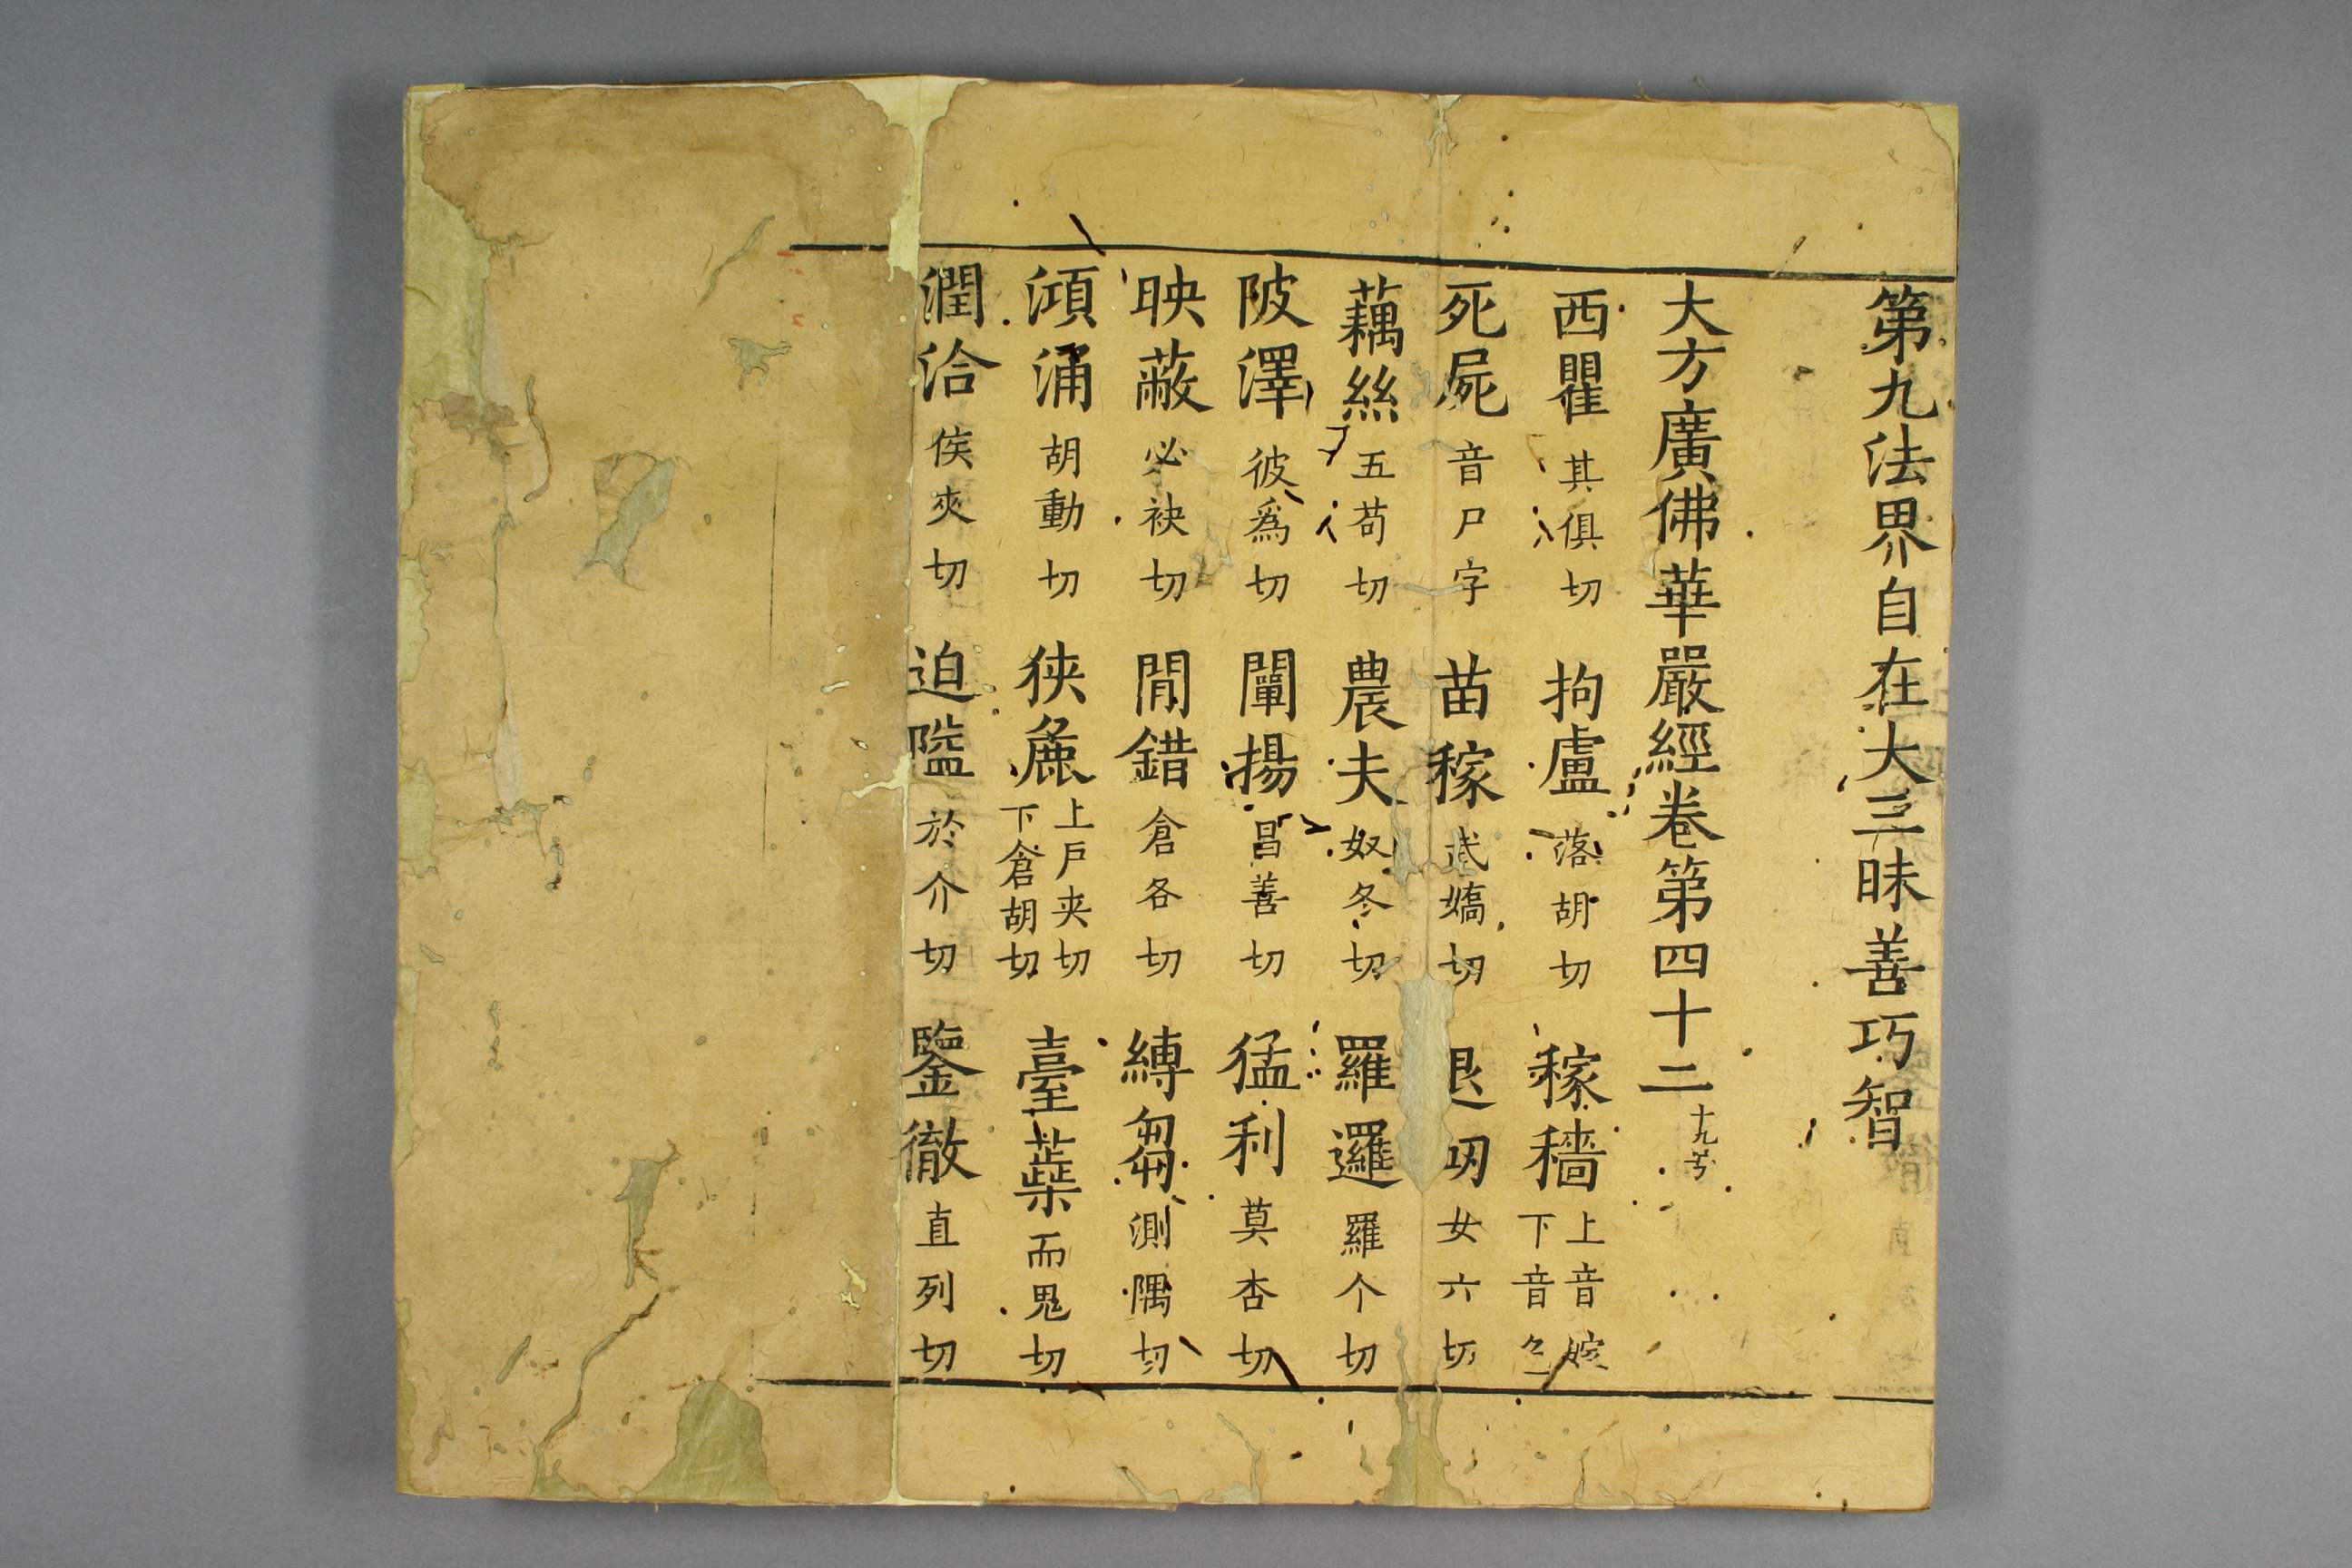 第九法界自在大三昧善巧智
大方廣佛華嚴經卷第四十二
西瞿其俱切　拘盧落胡切　稼穡上音嫁下音色
死屍音尸字　苗稼武嬌切　退㘝女六切
藕絲五苟切　農夫奴冬切　羅邏羅个切
陂澤彼爲切　闡揚昌善切　猛利莫杏切
映蔽必袂切　閒錯倉各切　縛芻測隅切
澒涌胡動切　狹麁上戶夾切下倉胡切　臺蘂而𮎰切
潤洽侯夾切　迫隘於介切　鑒徹直列切